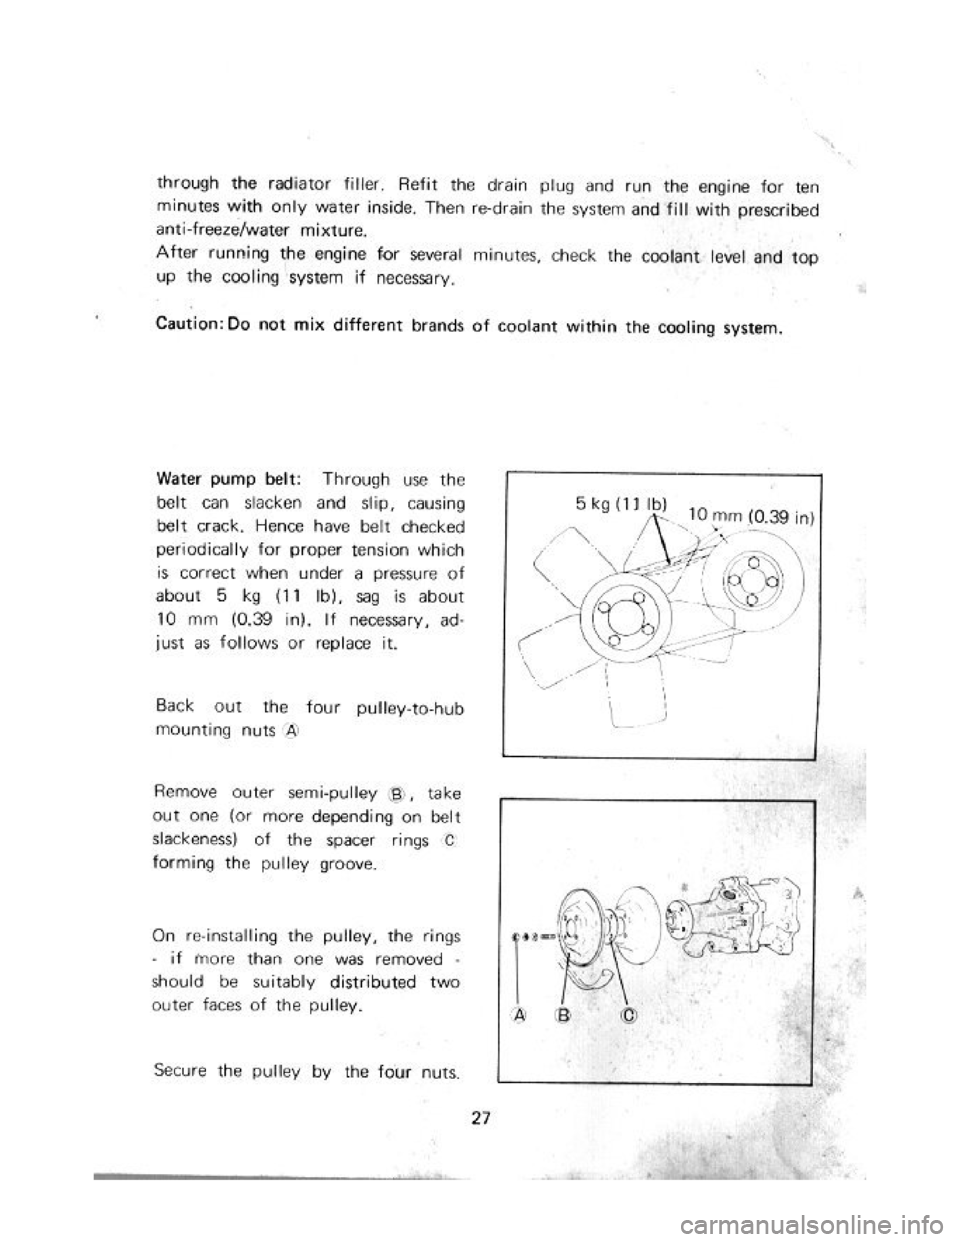 through the radiator filler. Refit the drain plug and run the engine for ten
minutes with only water inside. Then re-drain the system and fill with prescribed
anti-freeze/water mixture.
After running the engine for several minutes, check the coolant level and top
up the cooling system if necessary.
Caution: Do not mix different brands of coolant within the cooling system.
Water pump belt: Through use the
belt can slacken and slip, causing
belt crack. Hence have belt checked
periodically for proper tension which
is correct when under a pressure of
about 5 kg (11 lb), sag is about
10 mm (0.39 in). If necessary, ad-
just as follows or replace it.
Back out the four pulley-to-hub
mounting nuts Ⓐ
Remove outer semi-pulley Ⓑ, take
out one (or more depending on belt
slackeness) of the spacer rings C
forming the pulley groove.
On re-installing the pulley, the rings
- if more than one was removed -
should be suitably distributed two
outer faces of the pulley.
Secure the pulley by the four nuts.
5 kg (11 lb)
10 mm (0.39 in)
Ⓐ Ⓑ Ⓒ
27
carmanualsonline.info